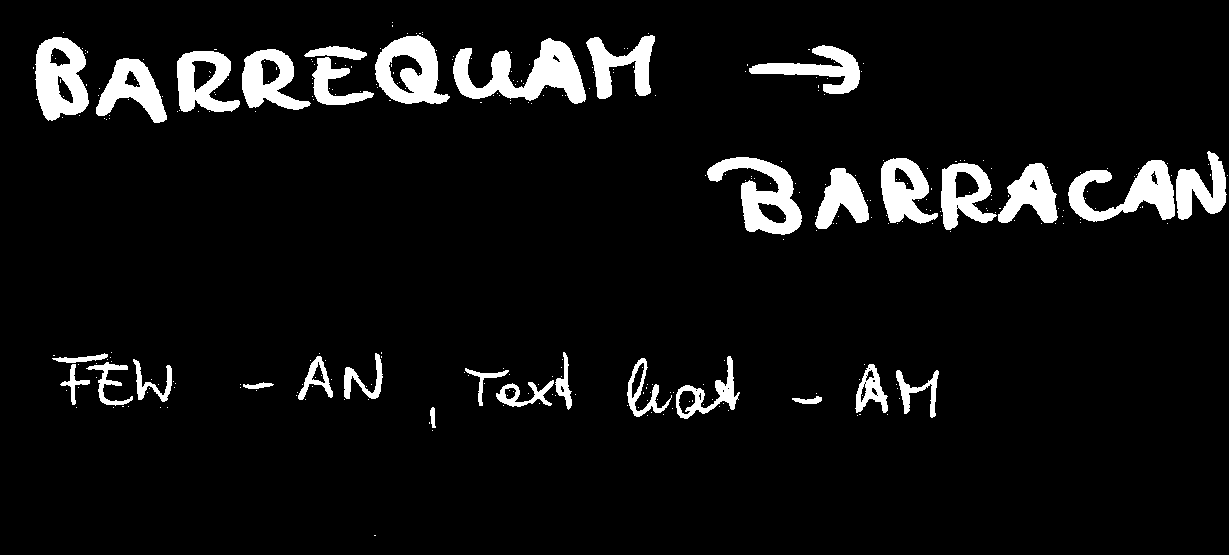 BARREQUAM →
BARRACAN
FEW - AN, Text hat - AM